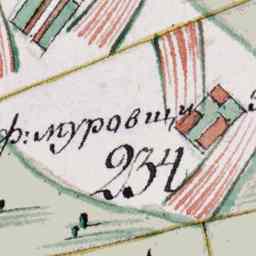 ф: муровици
234